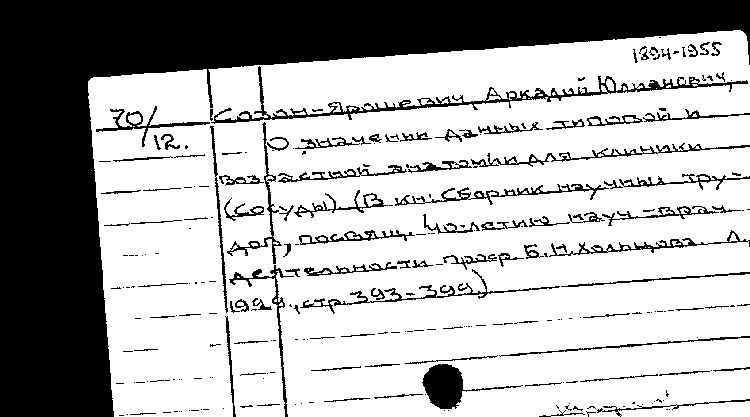 1894-1955
70/12. Созон-Ярошевич, Аркадий Юлианович,
О значении данных типовой и
возрастной анатомии для клиники
(сосуды) (В кн: Сборник научных тру-
дов, посвящ. 40-летию науч-врач
деятельности проф. Б.Н.Хольцова. Л.,
1929., стр. 393-399)